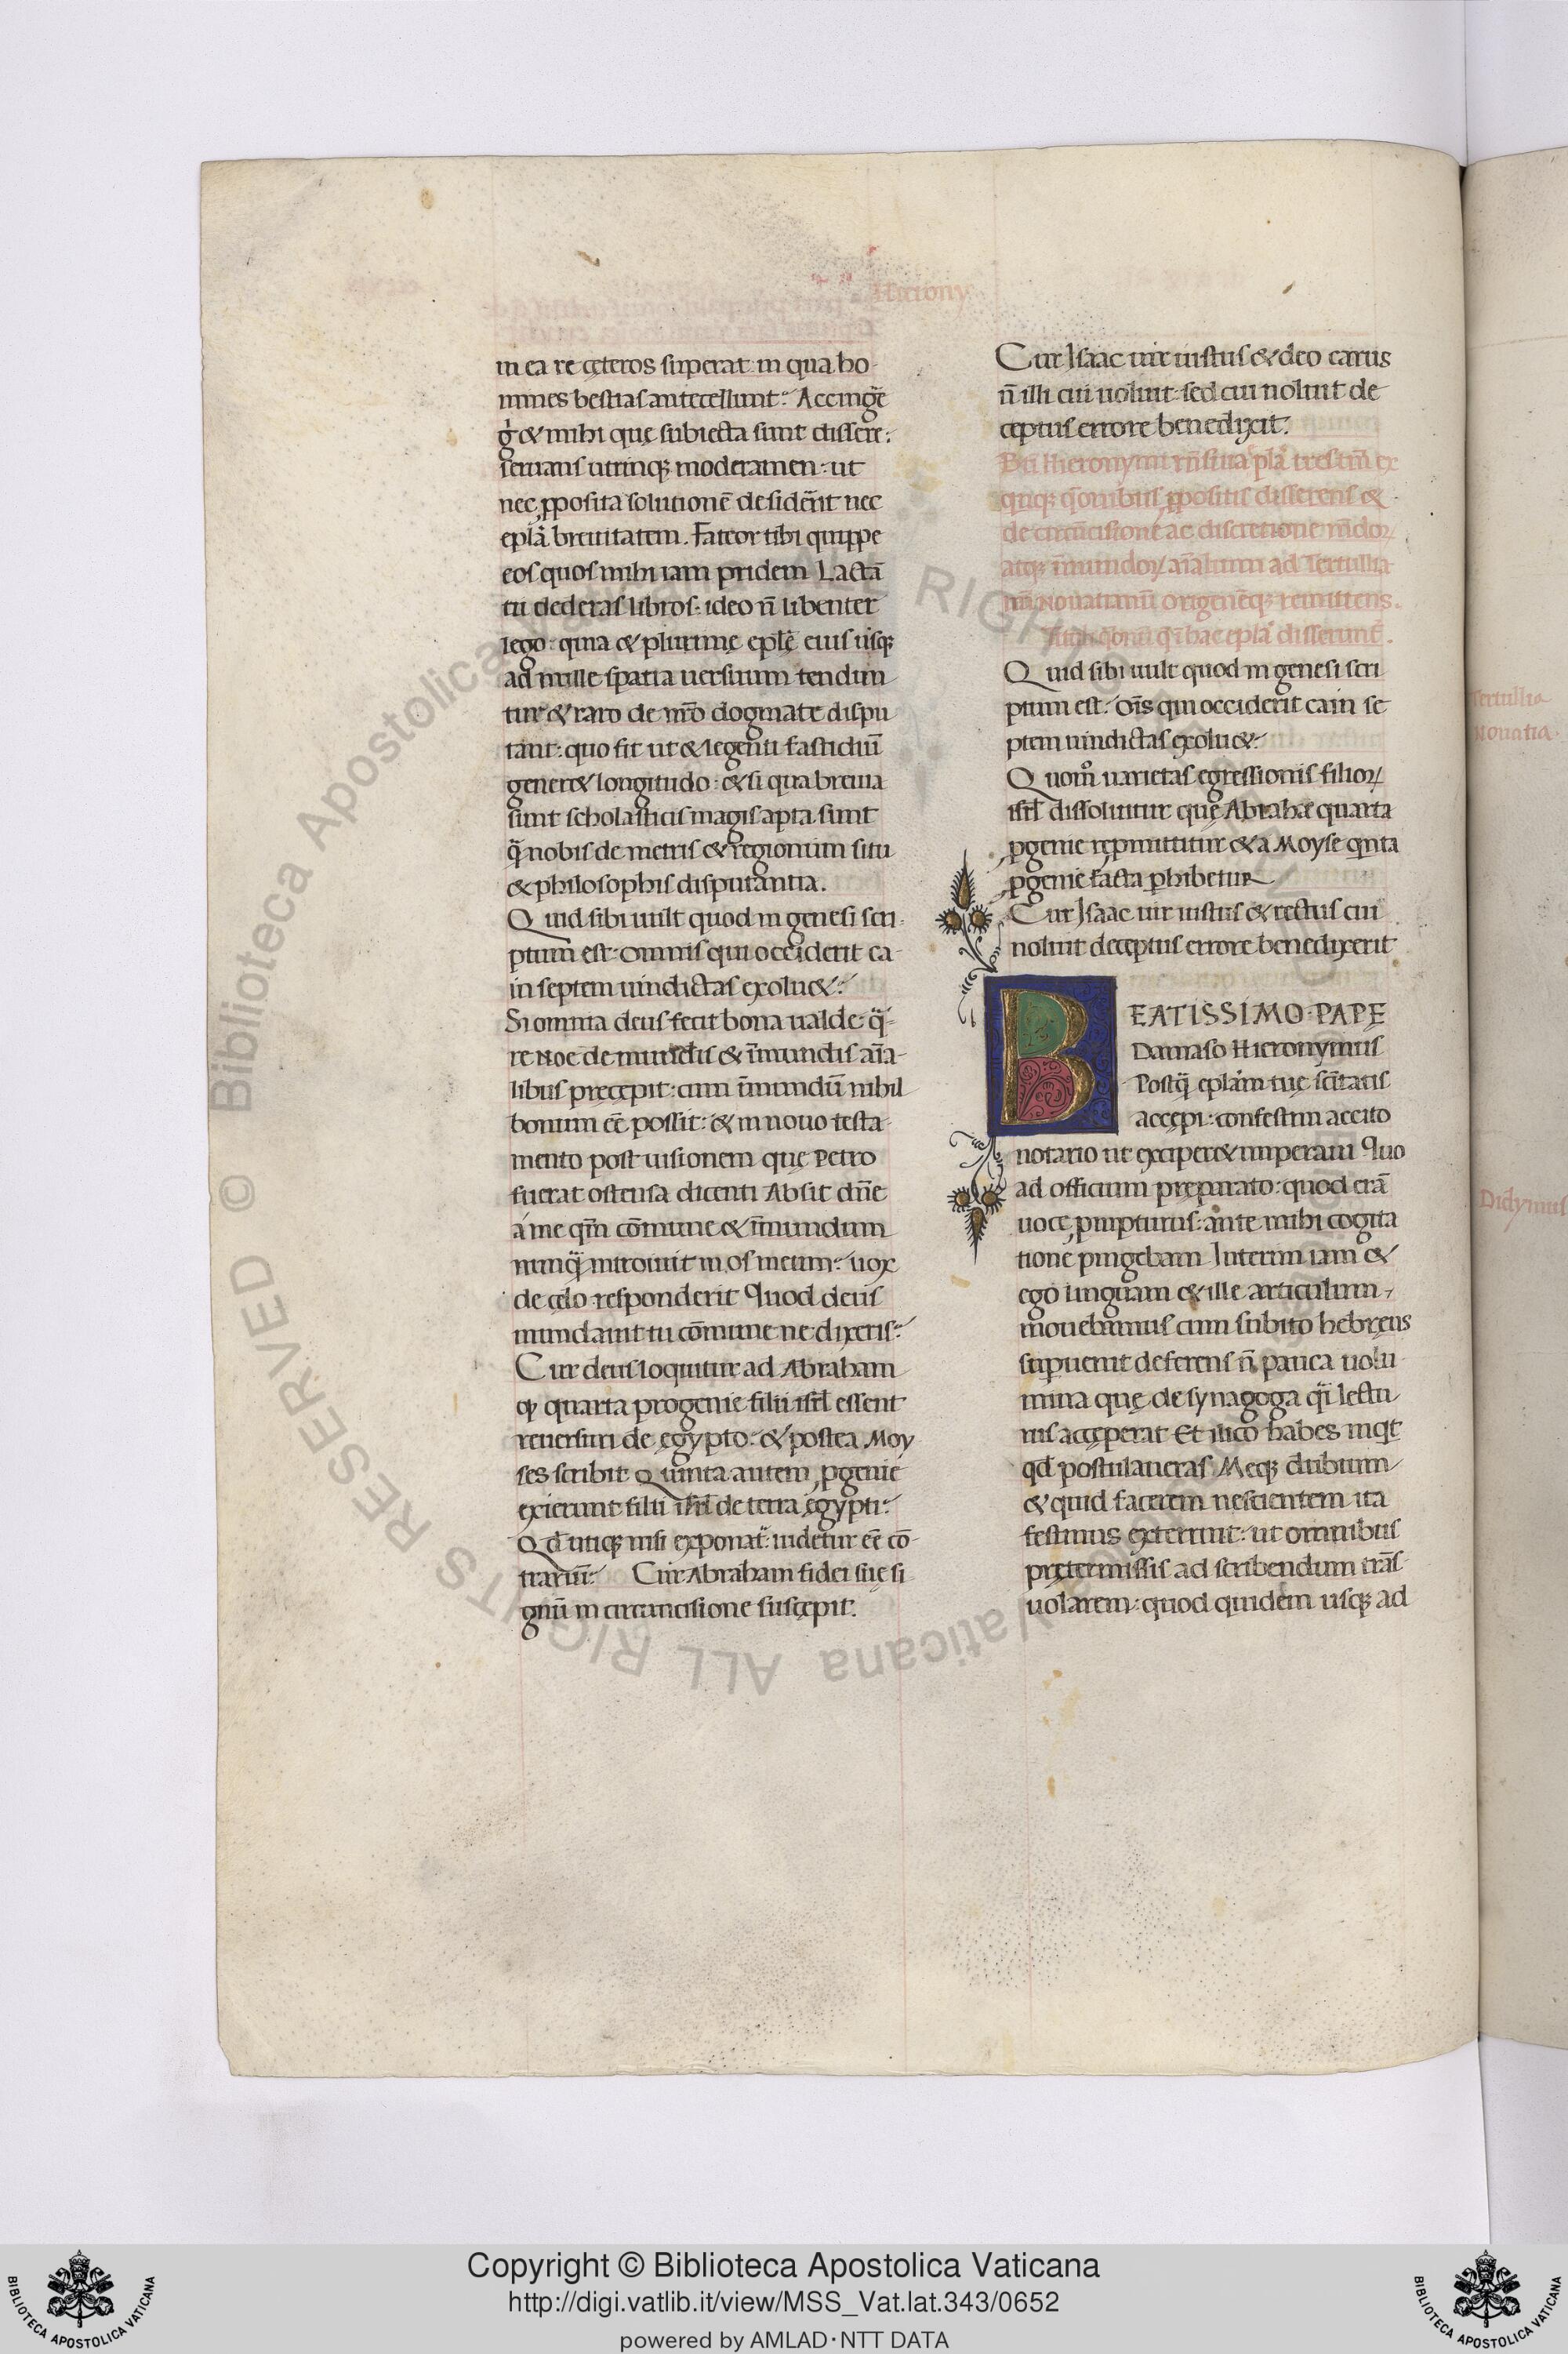 Hierony
in ea re cęteros superat in qua ho-
mines bestias antecellunt: Accingē
g̊ & mihi quę subiecta sunt dissere:
seruans utrinq; moderamen: ut
nec ꝓposita solutionē desiderīt nec
epl̄a breuitatem. Fateor tibi quippe
eos quos mihi iam pridem Lactā
tii dederas libros: ideo n̄ libenter
lego: quia & plurimę epl̄ę eius usq;
ad mille spatia uersuum tendun
tur & raro de nr̄o dogmate dispu
tant: quo fit ut & legenti fastidiū
generet longitudo: & si qua breuia
sunt scholasticis magis apta sunt
q̄ nobis de metris & regionum situ
& philosophis disputantia.
Quid sibi uult quod in genesi scri-
ptum est: Omnis qui occiderit ca-
in septem uindictas exoluet:
Si omnia deus fecit bona ualde: q̄-
re Noe de mundis & īmundis aīa-
libus pręcępit: cum īmundū nihil
bonum eē possit: & in nouo testa-
mento post uisionem quę Petro
fuerat ostensa dicenti Absit dn̄e
a me qm̄ cōmune & īmundum
nunq̄ introiuit in os meum: uox
de cęlo responderit Quod deus
mundauit tu cōmune ne dixeris:
Cur deus loquitur ad Abraham
ꝙ quarta progenie filii isrl̄ essent
reuersuri de ęgypto: & postea Moy
ses scribit Quinta autem ꝓgenie
exierunt filii isrl̄ de terra ęgypti:
Qd̄ utiq; nisi exponat̄: uidetur eē cō-
trariū: Cur Abraham fidei suę si
gnū in circuncisione suscępit.
Cur Isaac uir iustus & deo carus
n̄ illi cui uoluit: sed cui noluit de
ceptus errore benedixit:
de circūcisione ac discretione mūdoꝝ
atq; īmundoꝝ aīalium ad Tertullia
nū Nouatianū Origenēq; remittens.
Quid sibi uult quod in genesi scri
ptum est: Oīs qui occiderit cain se
ptem uindictas exoluet:
Quom̊ uarietas egressionis filioꝝ
isrl̄ dissoluitur quę Abrahę quarta
ꝓgenie repmittitur & a Moyse qīnta
ꝓgenie facta ꝑhibetur
Cur Isaac uir iustus & rectus cui
noluit deceptus errore benedixerit
BEATISSIMO·PAPĘ
Damaso Hieronymus
Postq̄ eplām tuę sc̄itatis
accępi: confestim accito
notario ut exciperet imperaui Quo
ad officium pręparato: quod erā
uoce ꝓmpturus: ante mihi cogita
tione pingebam Interim iam &
ego linguam & ille articulum
mouebamus cum subito hebręus
superuenit deferens n̄ pauca uolu
mina quę de synagoga q̄i lectu
rus accęperat Et ilico habes inqt̄
qd̄ postulaueras Meq; dubium
& quid facerem nescientem ita
festinus exterruit: ut omnibus
prętermissis ad scribendum trās-
uolarem: quod quidem usq; ad
Tertullia
Nouatia
Didymus
© Biblioteca Apostolica Vaticana ALL RIGHTS RESERVED
Copyright © Biblioteca Apostolica Vaticana
http://digi.vatlib.it/view/MSS_Vat.lat.343/0652
powered by AMLAD·NTT DATA
BIBLIOTECA APOSTOLICA VATICANA
BIBLIOTECA APOSTOLICA VATICANA